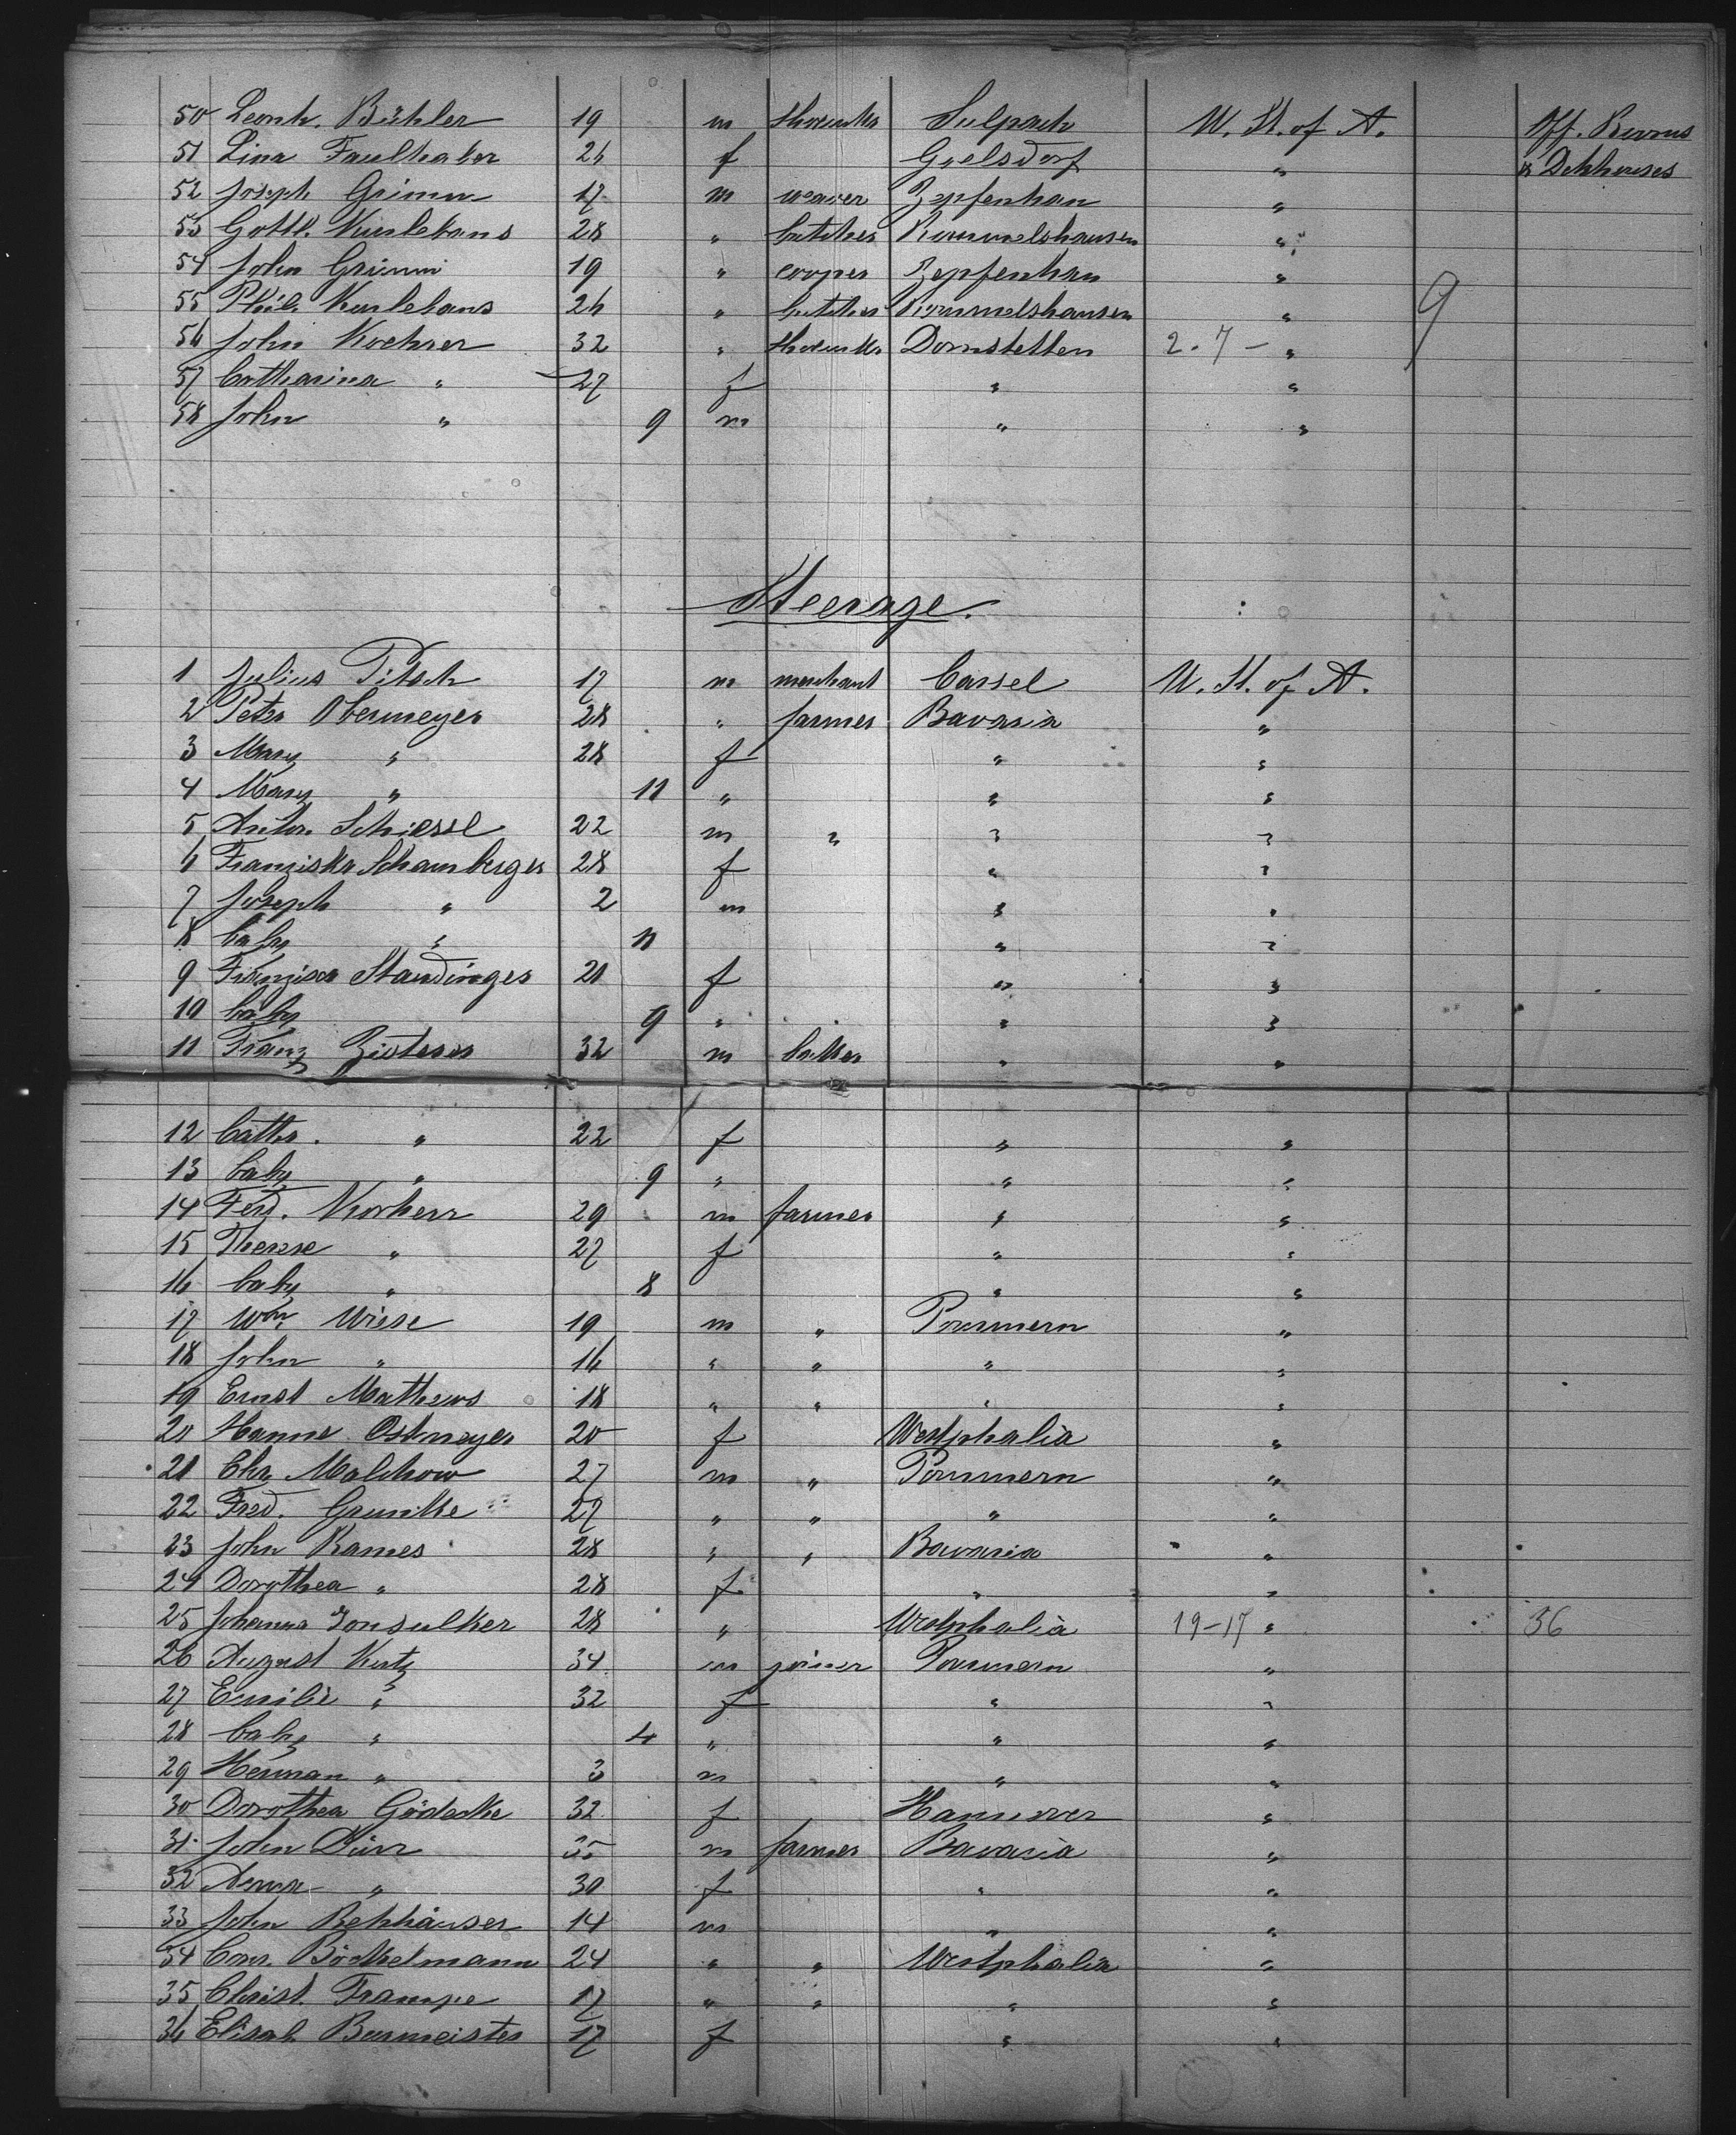 50 Leonh. Bühler 19 m Shoemkr Sulpach U. St. of A. Off. Rooms
51 Lina Faulhaber 26 f Goelsdorf " & Dekhouses
52 Joseph Grimm 17 m weaver Zepfenhan "
53 Gottl. 28 " butcher Rommelshausen "
54 John Grimm 19 " cooper Zepfenhan "
55 Phil. 26 " butcher Rommelshausen " 9
56 John Kochner 32 " Shoemkr. Dornstetten 2.7 - "
57 Catharina " 27 f " "
58 John " 9 m " "
Steerage.
1 Julius Pitsch 17 m merchant Cassel U. St. of A.
2 Peter Obermeyer 28 " farmer Bavaria "
3 Mary " 28 f " "
4 Mary " 11 " " "
5 Anton Schiessl 22 m " " "
6 Franziska Schamberger 28 f " "
7 Joseph " 2 m " "
8 baby " 11 " "
9 Franzisca Staudinger 21 f " "
10 baby 9 " " "
11 Franz Zisterer 32 m baker " "
12 Cathr. " 22 f " "
13 baby " 9 " " "
14 Ferd. Korherr 29 m farmer " "
15 Therese " 27 f " "
16 baby " 8 " "
17 Wm. Wiese 19 m " Pommern "
18 John " 16 " " " "
19 Ernst Mathews 18 " " " "
20 Hanne Ostmeyer 20 f Westphalia "
21 Chr. Malchow 27 m " Pommern "
22 Fred. Grunike 27 " " " "
23 John Rames 28 " " Bavaria "
24 Dorothea " 28 f " "
25 Johanna 28 " Westphalia 19-17 " 36
26 August Kutz 34 m joiner Pommern "
27 Emilie " 32 f " "
28 baby " 4 " " "
29 Herman " 3 m " "
30 Dorothea Gödecke 32 f Hannover "
31 John Dürr 35 m farmer Bavaria "
32 Anna " 30 f " "
33 John Rehhäuser 14 m " "
34 Conr. Böckelmann 24 " " Westphalia "
35 Christ. Frampe 17 " " " "
36 Elisab. Burmeister 17 f " "